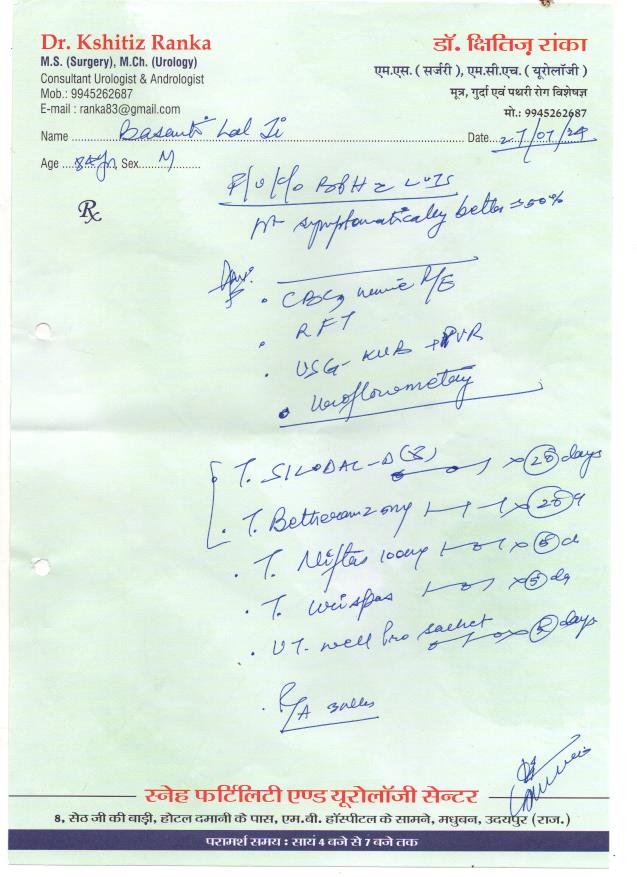 Dr. Kshitiz Ranka
M.S. (Surgery), M.Ch. (Urology)
Consultant Urologist & Andrologist
Mob.: 9945262687
E-mail : ranka83@gmail.com
डॉ. क्षितिज़ रांका
एम.एस. ( सर्जरी ), एम.सी.एच. ( यूरोलॉजी )
मूत्र, गुर्दा एवं पथरी रोग विशेषज्ञ
मो.: 9945262687
Name Basanti Lal Ji Date 27/07/24
Age 84 Yr Sex M
Rx
F/U/C/O BPH c LUTS
Pt symptomatically better 50%
Adv.
• CBC, Urine R/E
• RFT
• USG- KUB + PVR
• Uroflowmetry
• T. SILODAL-D (8) x 28 days
• T. 28 d
• T. Niftas 100mg x 5 d
• T. Urispas x 5 d
• UT- well Pro sachet x 5 days
R/A
स्नेह फर्टिलिटी एण्ड यूरोलॉजी सेन्टर
8, सेठ जी की बाड़ी, होटल दमानी के पास, एम.बी. हॉस्पीटल के सामने, मधुबन, उदयपुर (राज.)
परामर्श समय : सायं 4 बजे से 7 बजे तक